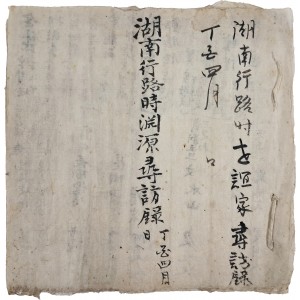 湖南行路时世誼家尋訪錄
丁四月 日
湖南行路時淵源尋訪錄
丁四月 日